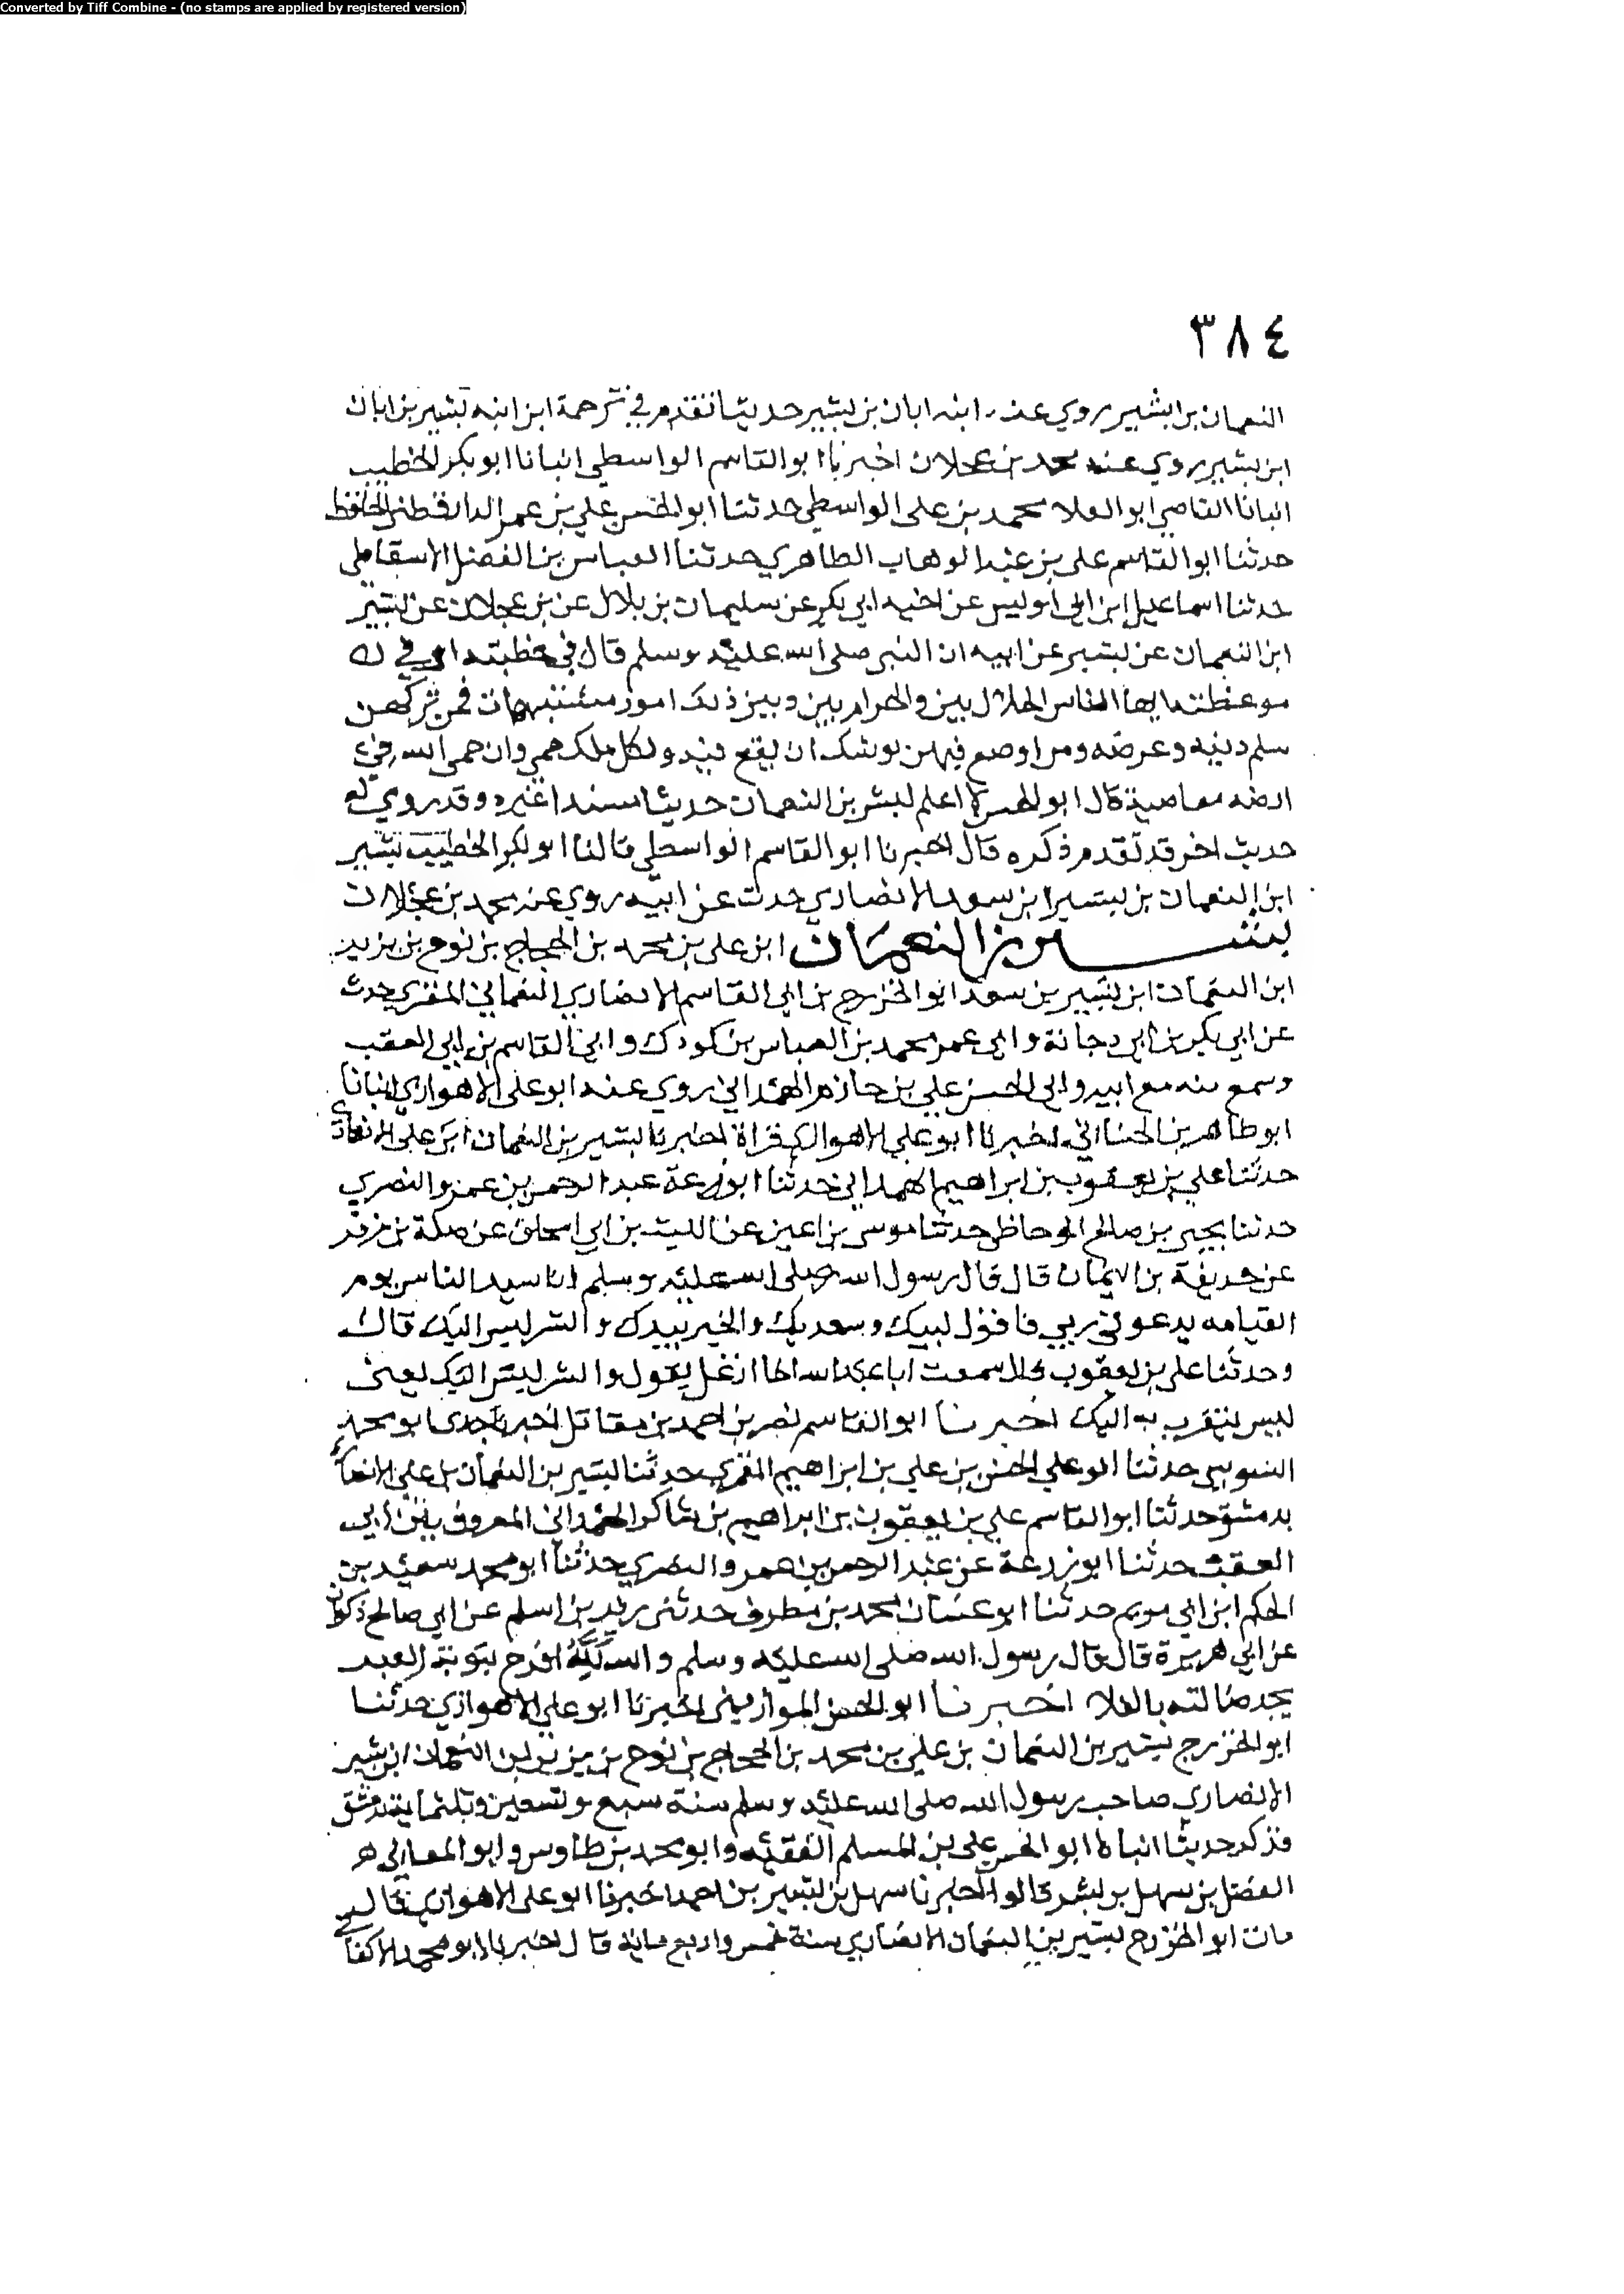 Converted by Tiff Combine - (no stamps are applied by registered version)
٣٨٤
النعمان بن بشير روي عنه ابنه ابان بن بشير حديثا تقدم في ترجمة ابن ابنه بشير بن ابان
ابن بشير روي عنه محمد بن عجلان اخبرنا ابو القاسم الواسطي انبانا ابو بكر الخطيب
انبانا القاضي ابو العلا محمد بن علي الواسطي حدثنا ابو الحسن علي بن عمر الدارقطني الحافظ
حدثنا ابو القاسم علي بن عبد الوهاب الطاهري حدثنا العباس بن الفضل الاسقاطي
حدثنا اسماعيل ابن ابي اويس عن اخيه ابي بكر عن سليمان بن بلال عن بن عجلان عن بشير
ابن النعمان عن بشير عن ابيه ان النبي صلى الله عليه وسلم قال في خطبته او في
موعظته ايها الناس الحلال بين والحرام بين وبين ذلك امور مشتبهات فمن تركهن
سلم دينه وعرضه ومن اوضع فيهن يوشك ان يقع فيه ولكل ملك حمى وان حمى الله في
ارضه معاصيه قال ابو الحسن لا اعلم لبشر بن النعمان حديثا مسندا غيره وقد روي له
حديث اخر قد تقدم ذكره قال اخبرنا ابو القاسم الواسطي قال لنا ابو بكر الخطيب بشير
ابن النعمان بن بشير ابن سعد الانصاري حدث عن ابيه روي عنه محمد بن عجلان
بشير بن النعمان ابن علي بن محمد بن الحجاج بن نوح بن يزيد
ابن النعمان ابن بشير بن سعد ابو الخزرج بن ابي القاسم الانصاري النعماني المقري حدث
عن ابي بكر بن ابي دجانة وابي عمر محمد بن العباس بن كودك وابي القاسم بن ابي العقب
وسمع منه مع ابيه وابي الحسن علي بن حازم الهمداني روي عنه ابو علي الاهوازي انبانا
ابو طاهر بن الحنائي اخبرنا ابو علي الاهوازي قراة اخبرنا بشير بن النعمان ابن علي الانصاري
حدثنا علي بن يعقوب بن ابراهيم الهمداني حدثنا ابو زرعة عبد الرحمن بن عمرو النصري
حدثنا يحيى بن صالح الوحاظي حدثنا موسى بن اعين عن الليث بن ابي اسحاق عن صلة بن زفر
عن حذيفة بن اليمان قال قال رسول الله صلى الله عليه وسلم انا سيد الناس يوم
القيامه يدعوني ربي فاقول لبيك وسعديك والخير بيدك والشر ليس اليك قال
وحدثنا علي بن يعقوب سمعت ابا يقول والشر ليس اليك يعني
ليس يتقرب به اليك اخبرنا ابو القاسم نصر بن احمد بن مقاتل اخبرنا جدي ابو محمد
السوسي حدثنا ابو علي الحسن بن علي بن ابراهيم المقري حدثنا بشير بن النعمان بن علي الانصاري
بدمشق حدثنا ابو القاسم علي بن يعقوب بن ابراهيم بن شاكر الهمداني المعروف بابن ابي
العقب حدثنا ابو زرعة عن عبد الرحمن بن عمرو النصري حدثنا ابو محمد سعيد بن
الحكم ابن ابي مريم حدثنا ابو غسان محمد بن مطرف حدثني زيد بن اسلم عن ابي صالح ذكوان
عن ابي هريرة قال قال رسول الله صلى الله عليه وسلم والله لله افرح بتوبة العبد
يجد ضالته بالفلا اخبرنا ابو الحسن الموازيني اخبرنا ابو علي الاهوازي حدثنا
ابو الخزرج بشير بن النعمان بن علي بن محمد بن الحجاج بن نوح بن يزيد بن النعمان ابن بشير
الانصاري صاحب رسول الله صلى الله عليه وسلم سنة سبع وتسعين وثلثماية بدمشق
فذكر حديثا انباه ابو الحسن علي بن المسلم الفقيه وابو محمد بن طاوس وابو المعالي
الفضل بن سهل بن بشر قالوا اخبرنا سهل بن بشير بن احمد اخبرنا ابو علي الاهوازي قال
مات ابو الخزرج بشير بن النعمان الانصاري سنة خمس واربع ماية قال اخبرنا ابو محمد الاكفاني